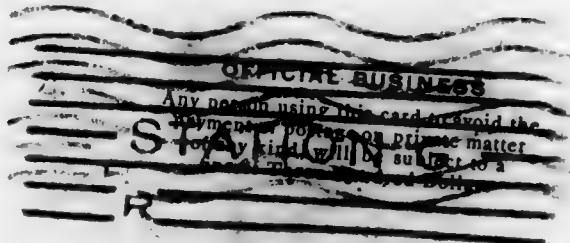 OFFICIAL BUSINESS
Any person using this card to avoid the
payment of postage on private matter
of any kind, will be subject to a
Dollars
STATION
R